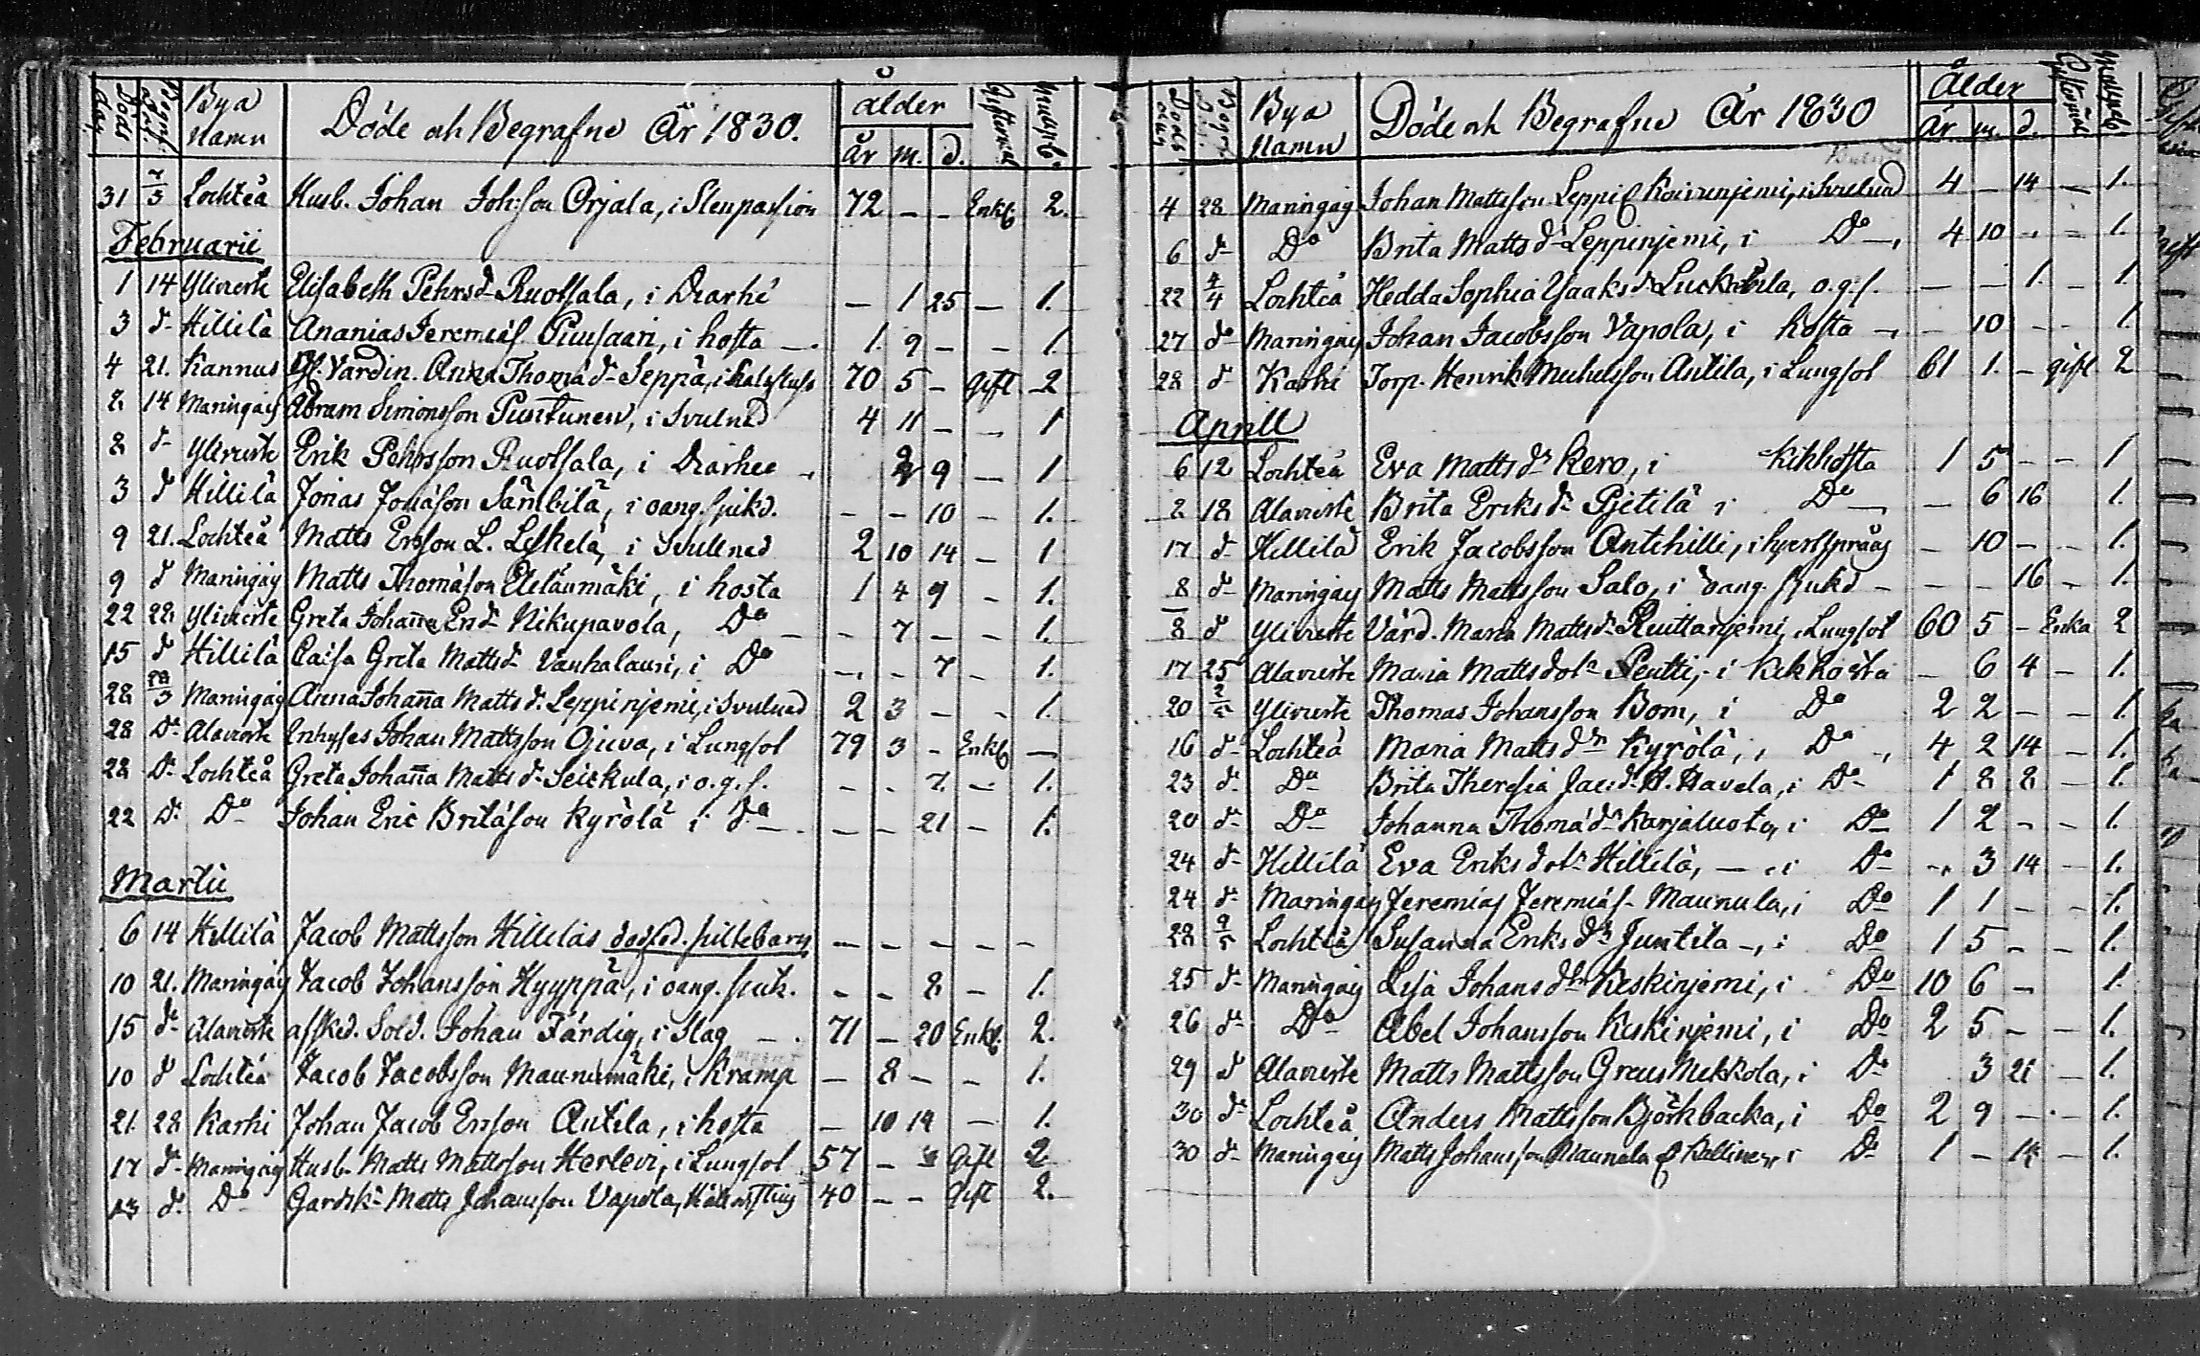 Bya Namn Döde och Begrafne År 1830. ålder Giftermål
Döds dag år m. d.
31 7/3 Lochteå Husb. Johan Johsson Orjala, i Stenpassion 72 – – Enkl. 2.
Februarii
1 14 Ylivieste Elisabeth Pehrsd. Ruotsala, i Diarhé – 1 25 – 1.
3 d– Hillilä Ananias Jeremiæs. Piusaari, i hosta – 1. 9 – – 1.
4 21. Kannus Gl. Värdin. Anna Thomæd– Seppä, i 70 5 – gift 2
2 14 Maringais Abram Simonsson Puntunen, i Svulnad 4 11 – – 1
8 d– Ylivieste Erik Pehrsson Ruotsala, i Diarhee 2 9 – 1
3 d Hillilä Jonas Jonæson Sämbilä, i oang. sjukd. – – 10 – 1.
9 21. Lochteå Matts Ersson L. Leskelä, i Svullnad 2 10 14 – 1
9 d Maringais Matts Thomæson Eteläumäki, i hosta 1 4 9 – 1.
22 28 Ylivieste Greta Johanna End. Nikupavola, Do – – 7 – – 1.
15 d Hillilä Caisa Greta Mattsd– Vanhalauri, i Do – – 7 – 1.
28 Maringais Anna Johanna Mattsd. Leppinjemi, i Svulnad 2 3 – – 1.
28 D– Alavieste Enhyses Johan Mattsson Ojuva, i Lungsot 79 3 – Enkl. –
28 D– Lochteå Greta Johanna Mattsd– Seickula, i o.g.s. – – 7 – 1.
22 D– Do Johan Eric Britæson Kyrölä i do – – – 21 – 1.
Martii
6 14 Hillilä Jacob Mattsson Hilleläs dödföd. piltebarn – – – – –
10 21. Maringais Jacob Johansson Hyyppä, i oang. sjuk. – – 8 – 1.
15 d– Alavieste afsked. Sold. Johan Färdig, i Slag – 71 – 20 Enkl. 2.
10 d Lochteå Jacob Jacobsson Maunumäki, i Kramp – 8 – – 1.
21 28 Karhi Johan Jacob Ersson Antila, i hosta – 10 14 – 1.
17 d– Maringais Husb. Matts Mattsson Herlevi, i Lungsot 57 – Gift 2
13 d– Do Gårdsk– Matts Johansson Vapola, 40 – – Gift 2.
Bya Namn Döde och Begrafne År 1830 Ålder
Döds År m. d.
4 28 Maringais Johan Mattsson Leppi i Svulnad 4 – 14 – 1.
6 d– Do Brita Mattsd– Leppinjemi, i Do – 4 10 – – 1.
22 4/4 Lochteå Hedda Sophia Isaaksd– Luckubila, o.g.s. – – 1. – 1
27 do Maringais Johan Jacobsson Vapola, i hosta – – 10 – – 1
28 d– Karhi Torp. Henrik Michelsson Antila, i Lungsot 61 1. – gift 2
Aprill
6 12 Lochteå Eva Mattsdr Kero, i Kikhosta 1 5 – – 1
2 18 Alavieste Brita Eriksdr Pjetilä i Do – – 6 16 1.
17 d– Hillilä Erik Jacobsson Antihilli, i hjertsprång – 10 – – 1.
8 d– Maringais Matts Mattsson Salo, i oang. sjukd – – – 16 – 1.
8 d Ylivieste Värd. Maria Mattsdr Ruittanjemi, Lungsot 60 5 – Enka 2
17 25 Alavieste Maria Mattsdotr Pentti, i Kikhosta – 6 4 – 1.
20 2/5 Ylivieste Thomas Johansson Bom, i Do 2 2 – – 1.
16 d– Lochteå Maria Mattsdr Kyrölä, i Do – 4 2 14 – 1.
23 d– Do Brita Theresia Jac:dr H. Havela, i Do 1 8 8 – 1.
20 d– Do Johanna Thomædr Karjaluoto, i Do 1 2 – – 1.
24 d– Hillilä Eva Eriksdotr Hillilä, – i Do – 3 14 – 1.
24 d– Maringais Jeremias Jeremiæs– Maunula, i Do 1 1 – – 1.
28 9/5 Lochteå Susanna Eriksdr Juntila –, i Do 1 5 – – 1.
25 d– Maringais Lisa Johansdtr Keskinjemi, i Do 10 6 – 1.
26 d– Do Abel Johansson Keskinjemi, i Do 2 5 – – 1.
29 d Alavieste Matts Mattsson Greus Mekkola, i Do 3 21 – 1.
30 d– Lochteå Anders Mattsson Björkbacka, i Do 2 9 – 1.
30 d– Maringais Matts Johansson Maunula i Do 1 – 14 – 1.